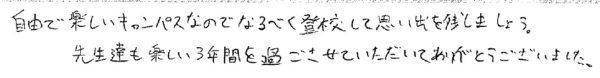 自由で楽しいキャンパスなのでなるべく登校して思い出を残しましょう。
先生達も楽しい3年間を過ごさせていただいてありがとうございました。